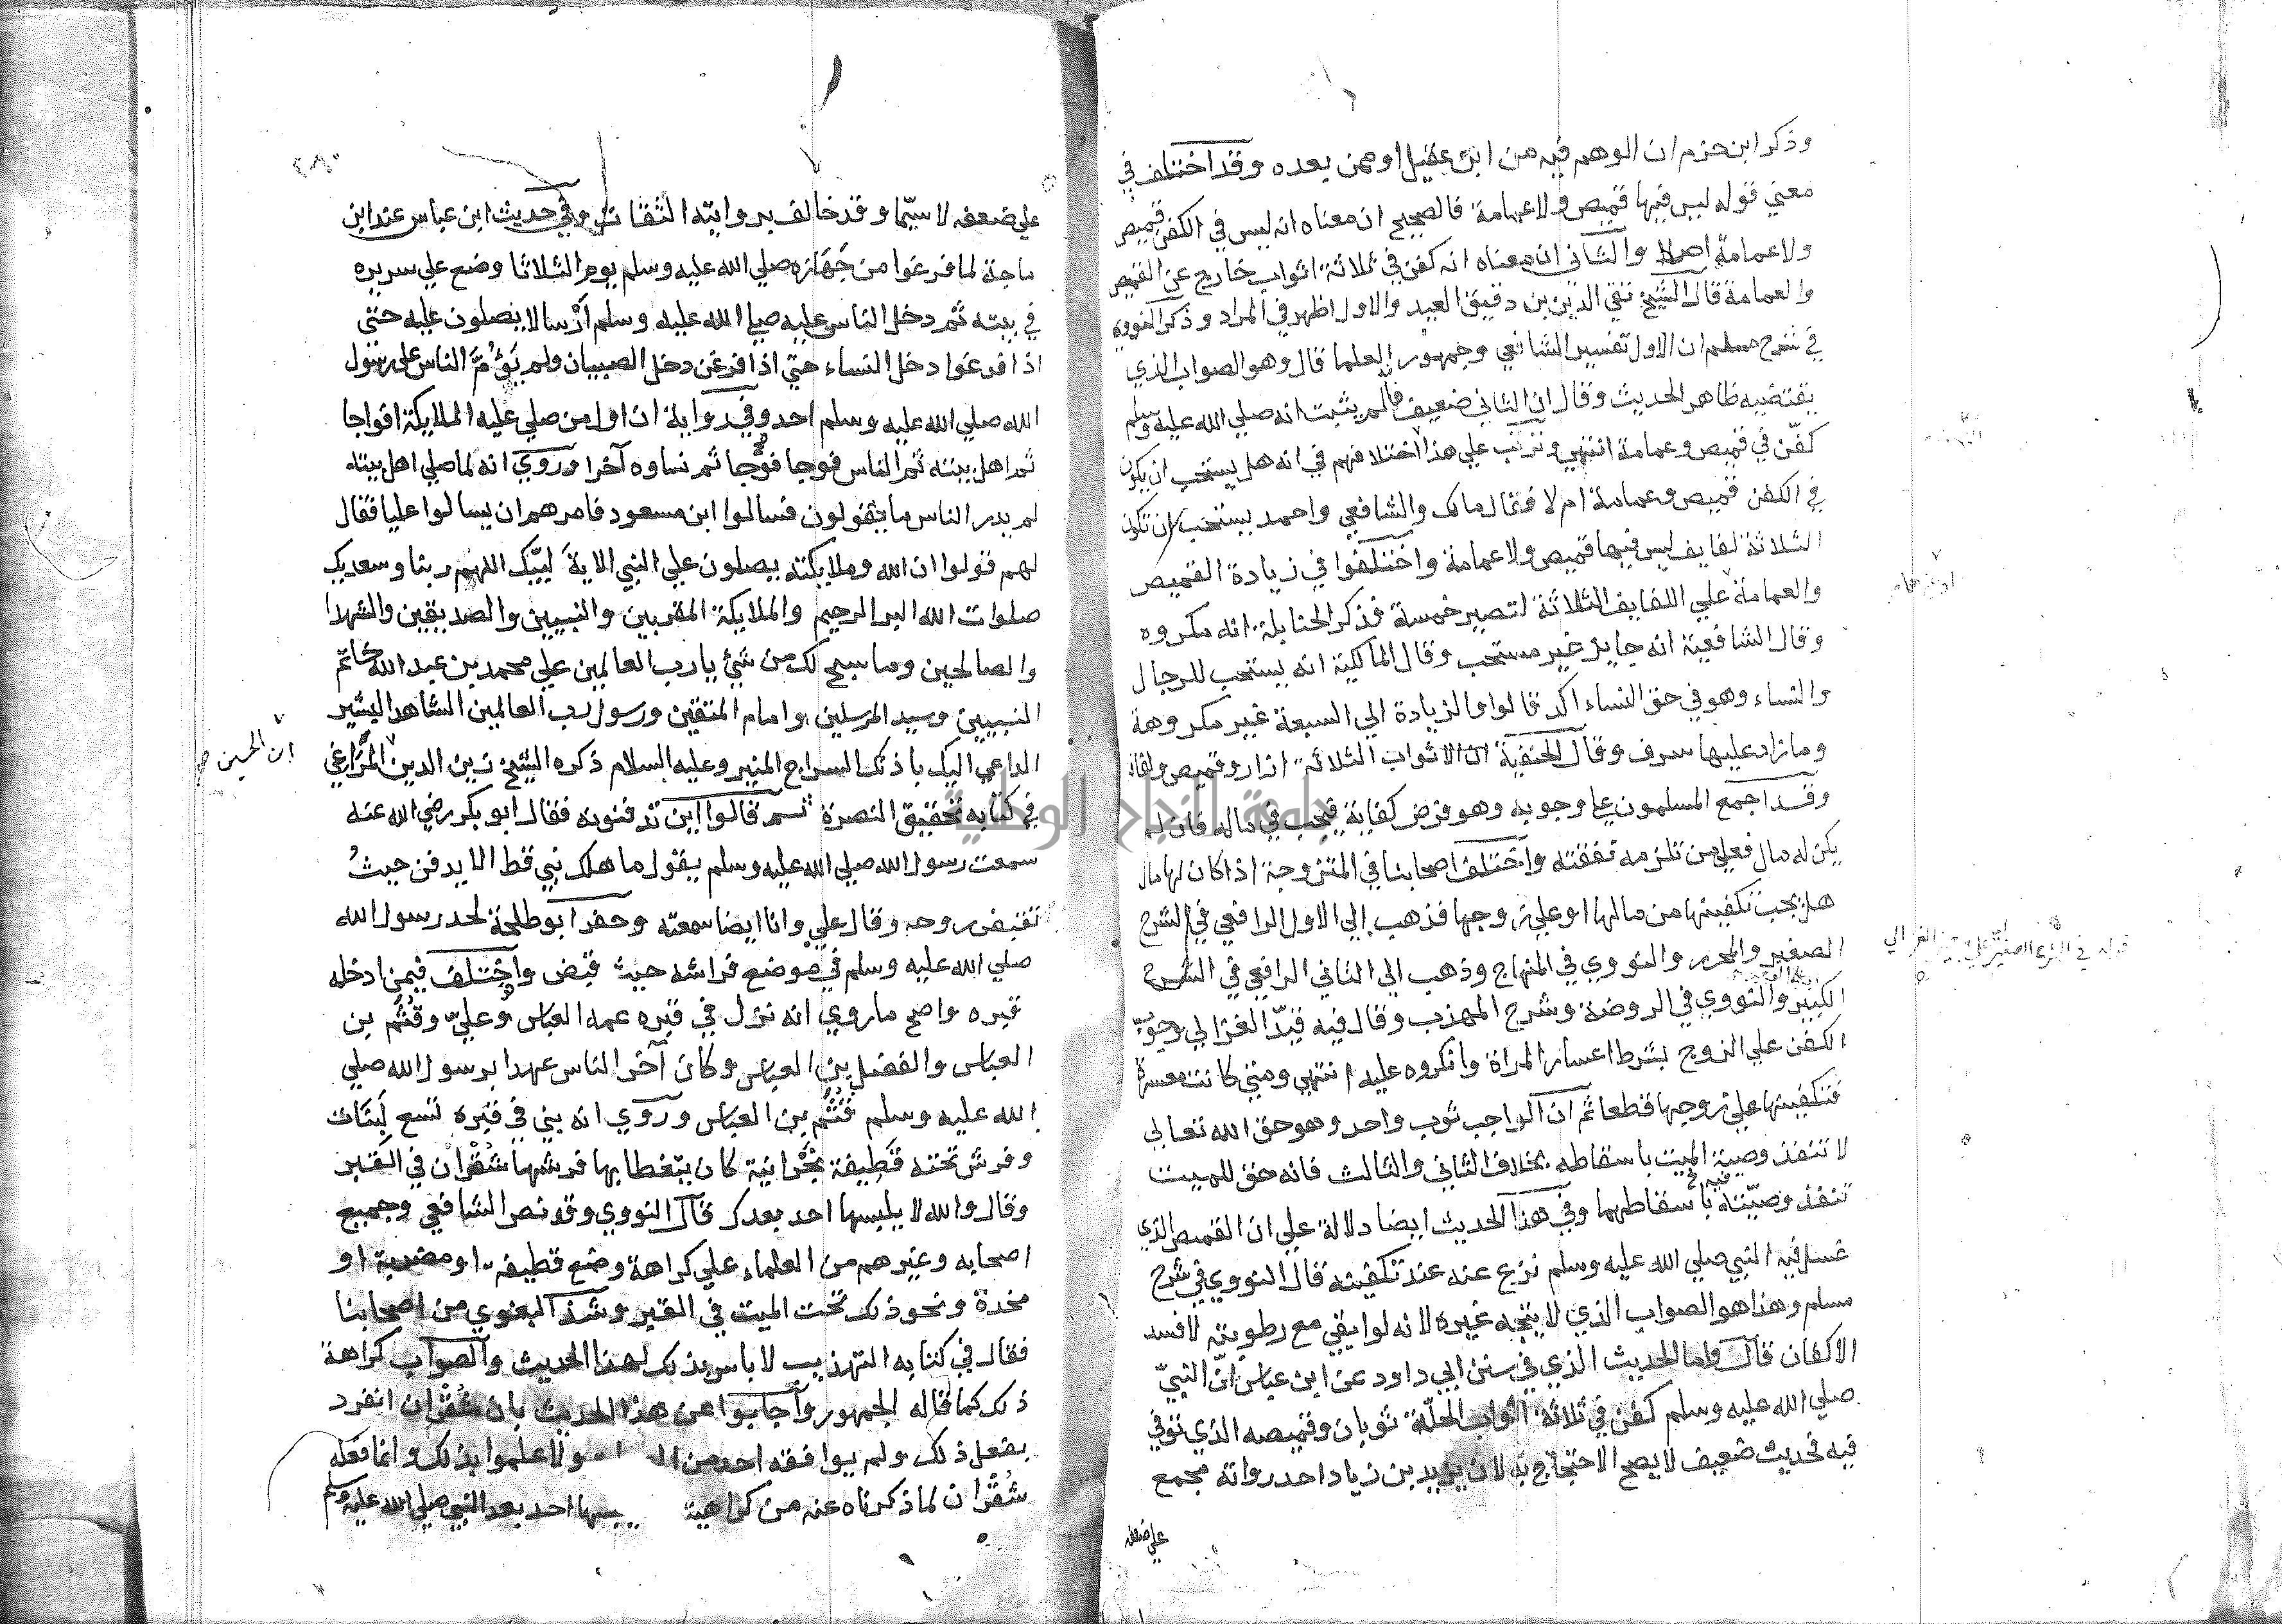 وذكر ابن حزم ان الوهم فيه من ابن عقيل او ممن بعده وقد اختلف في
معني قوله ليس فيها قميص ولا عمامة فالصحيح ان معناه انه ليس في الكفن قميص
ولا عمامة اصلا والثاني ان معناه انه كفن في ثلاثة اثواب خارج عن القميص
والعمامة قال الشيخ تقي الدين بن دقيق العيد والاول اظهر في المراد وذكر النووي
في شرح مسلم ان الاول تفسير الشافعي وجمهور العلما قال وهو الصواب الذي
يقتضيه ظاهر الحديث وقال ان الثاني ضعيف فلم يثبت انه صلي الله عليه وسلم
كفّن في قميص وعمامة انتهي وترتب علي هذا اختلافهم في انه هل يستحب ان يكون
في الكفن قميص وعمامة ام لا فقال مالك والشافعي واحمد يستحب ان تكون
الثلاثة لفايف ليس فيها قميص ولا عمامة واختلفوا في زيادة القميص
والعمامة علي اللفايف الثلاثة لتصير خمسة فذكر الحنابلة انه مكروه
وقال الشافعية انه جايز غير مستحب وقال المالكية انه يستحب للرجال
والنساء وهو في حق النساء اكد قالوا والزيادة الي السبعة غير مكروهة
وما زاد عليها سرف وقال الحنفية الاثواب الثلاثة ازار وقميص ولفافة
وقد اجمع المسلمون علي وجوبه وهو فرض كفاية فيجب في ماله فان لم
يكن له مال فعلي من تلزمه نفقته واختلف اصحابنا في المتزوجة اذا كان لها مال
هل يجب تكفينها من مالها او علي زوجها فذهب الي الاول الرافعي في الشرح
الصغير والمحرر والنووي في المنهاج وذهب الي الثاني الرافعي في الشرح
الكبير والنووي في الروضة وشرح المهذب وقال فيه قيّد الغزالي وجوب
الكفن علي الزوج بشرط اعسار المراة وانكروه عليه انتهي ومتي كانت معسرة
فتكفينها علي زوجها قطعا ثم ان الواجب ثوب واحد وهو حق الله تعالي
لا تنفذ وصية الميت باسقاطه بخلاف الثاني والثالث فانه حق للميت
تنفذ وصيّته باسقاطهما وفي هذا الحديث ايضا دلالة علي ان القميص الذي
غسل فيه النبي صلي الله عليه وسلم نزع عنه عند تكفينه قال النووي في شرح
مسلم وهذا هو الصواب الذي لا يتجه غيره لانه لو ابقي مع رطوبته لافسد
الاكفان قال واما الحديث الذي في سنن ابي داود عن ابن عباس انّ النبيّ
صلي الله عليه وسلم كفن في ثلاثة اثواب الحلّة ثوبان وقميصه الذي توفي
فيه فحديث ضعيف لا يصح الاحتجاج به لان يزيد بن زياد احد رواته مجمع
علي ضعفه
علي ضعفه لا سيّما وقد خالف بروايته الثقات وفي حديث ابن عباس عند ابن
ماجة لما فرغوا من جَهَازه صلي الله عليه وسلم يوم الثلاثا وضع علي سريره
في بيته ثم دخل الناس عليه صلي الله عليه وسلم أرْسالا يصلون عليه حتي
اذا فرغوا دخل النساء حتي اذا فرغن دخل الصبيان ولم يَؤُمَّ الناس علي رسول
الله صلي الله عليه وسلم احد وفي رواية ان اول من صلي عليه الملايكة افواجا
ثم اهل بيته ثم الناس فوجا فوجا ثم نساوه آخرا وروي انه لما صلي اهل بيته
لم يدر الناس ما يقولون فسالوا ابن مسعود فامرهم ان يسالوا عليا فقال
لهم قولوا ان الله وملايكته يصلون علي النبي الاية لبّيك اللهم ربنا وسعديك
صلوات الله البر الرحيم والملايكة المقربين والنبيين والصديقين والشهدا
والصالحين وما سبح لك من شئ يا رب العالمين علي محمد بن عبد الله خاتم
النبيين وسيد المرسلين وامام المتقين ورسول رب العالمين الشاهد البشير
الداعي اليك باذنك السراج المنير وعليه السلام ذكره الشيخ زين الدين المراغي
ابن الحسين
في كتابه تحقيق النصرة ثم قالوا اين تدفنونه فقال ابو بكر رضي الله عنه
سمعت رسول الله صلي الله عليه وسلم يقول ما هلك نبي قط الا يدفن حيثُ
تقبض روحه وقال علي وانا ايضا سمعته وحفر ابو طلحة لحد رسول الله
صلي الله عليه وسلم في موضع فراشه حيث قبض واختلف فيمن ادخله
قبره واصح ما روي انه نزل في قبره عمه العباس وعليّ وقُثَم بن
العباس والفضل بن العباس وكان آخر الناس عهدا برسول الله صلي
الله عليه وسلم قُثَم بن العباس وروي انه بني في قبره تسع لَبِنَات
وفرش تحته قَطِيفة نجْرانية كان يتغطا بها فرشها شُقْرَان في القبر
وقال والله لا يلبسها احد بعدك قال النووي وقد نص الشافعي وجميع
اصحابه وغيرهم من العلماء علي كراهة وضع قطيفة او مضربة او
مخدة ونحو ذلك تحت الميت في القبر وشذ البغوي من اصحابنا
فقال في كتابه التهذيب لا باس بذلك لهذا الحديث والصواب كراهة
ذلك كما قاله الجمهور واجابوا عن هذا الحديث بان شُقْران انفرد
بفعل ذلك ولم يوافقه احد من ولا علموا بذلك وانما فعله
شُقْران لما ذكرناه عنه من كراهية احد بعد النبي صلي الله عليه وسلم
جامعة النجاح الوطنية